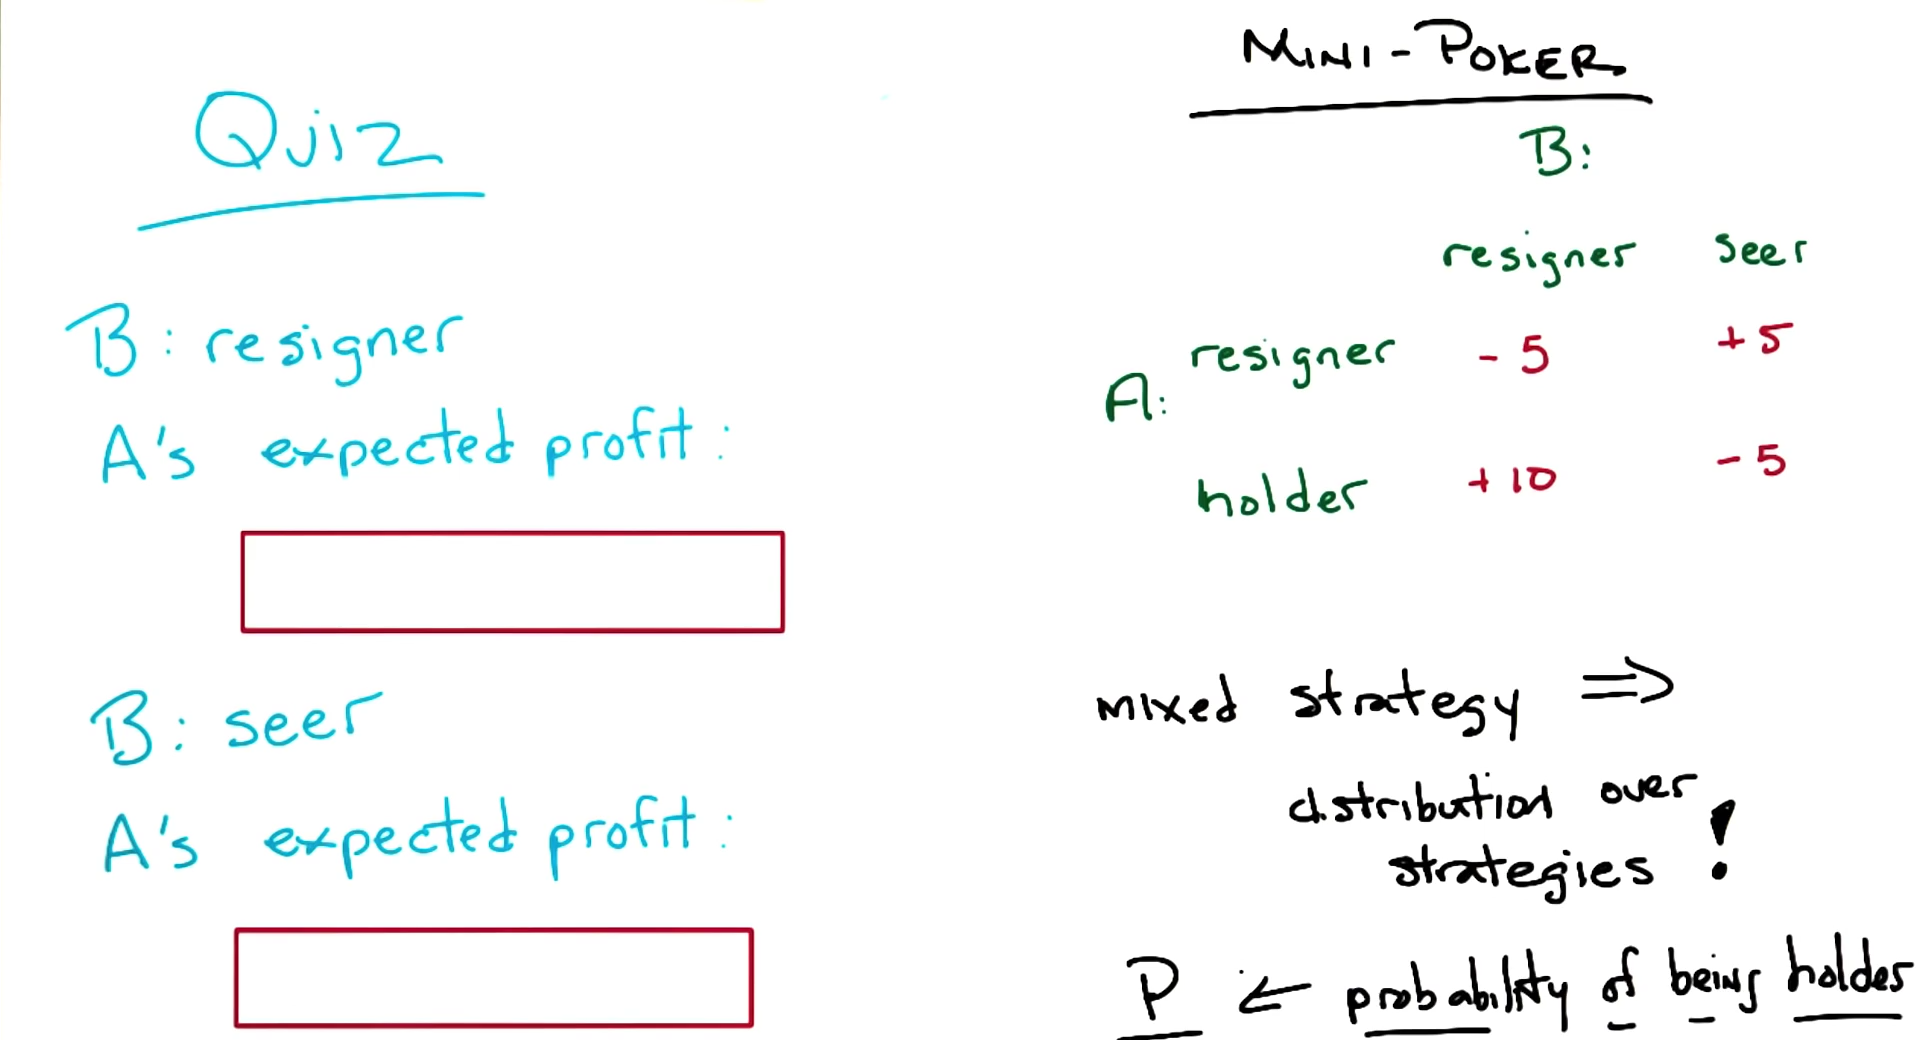 Quiz
B: resigner
A's expected profit:
B: seer
A's expected profit:
MINI-POKER
B:
resigner seer
A: resigner -5 +5
holder +10 -5
mixed strategy ⇒
distribution over
strategies !
P ← probability of being holder